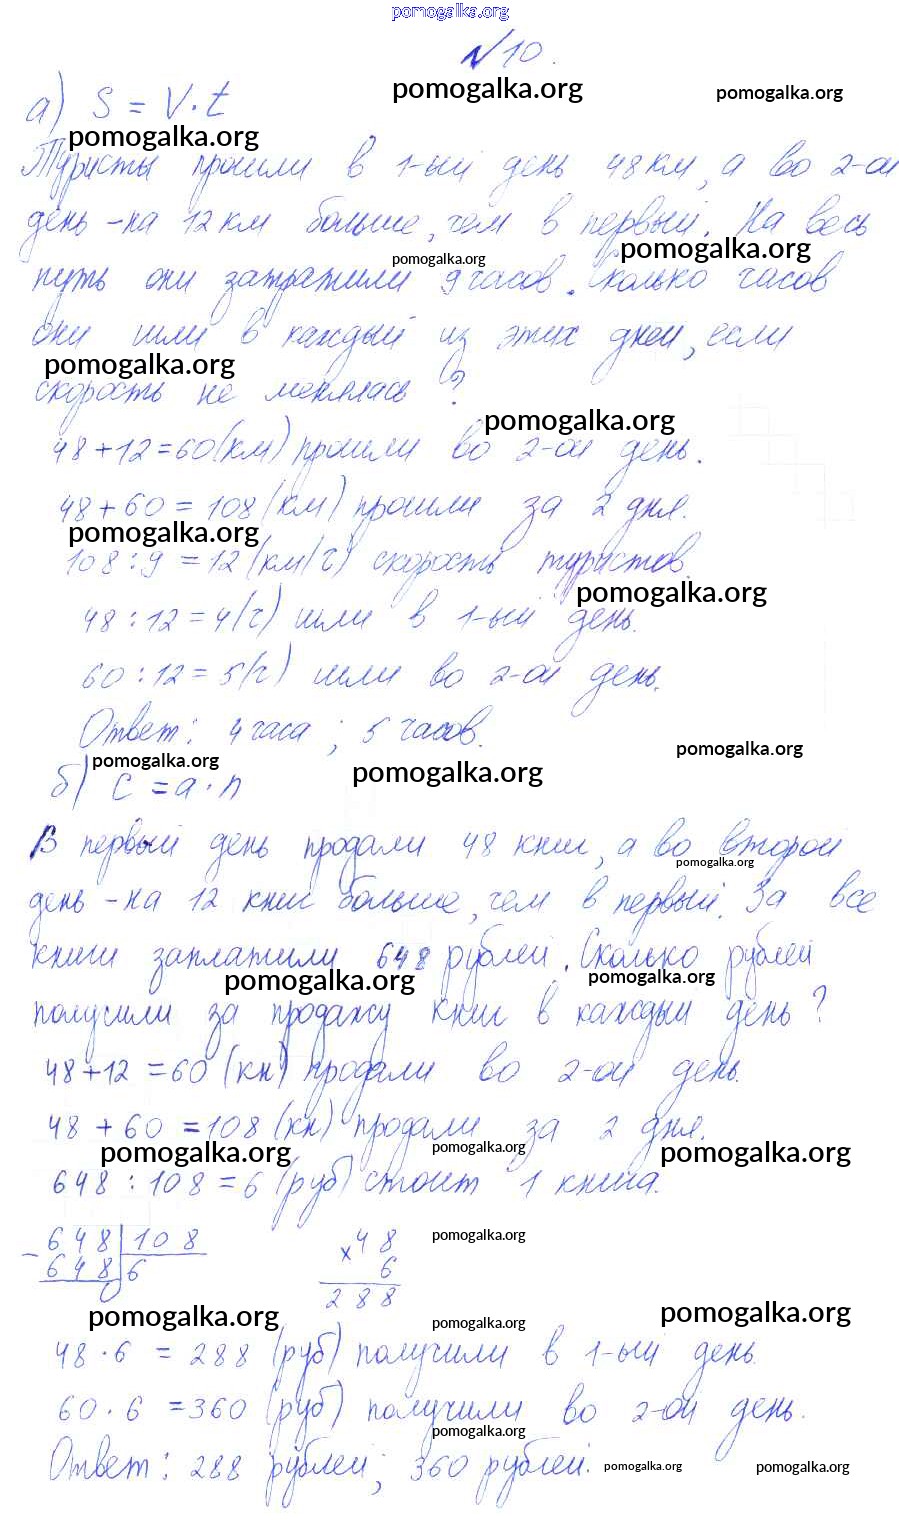 pomogalka.org
№10.
pomogalka.org pomogalka.org
а) S = V·t
pomogalka.org
Туристы прошли в 1-ый день 48 км, а во 2-ой
день - на 12 км больше, чем в первый. На весь
pomogalka.org
pomogalka.org
путь они затратили 9 часов. Сколько часов
они шли в каждый из этих дней, если
pomogalka.org
скорость не менялась?
pomogalka.org
48 + 12 = 60 (км) прошли во 2-ой день.
48 + 60 = 108 (км) прошли за 2 дня.
pomogalka.org
108 : 9 = 12 (км/ч) скорость туристов.
pomogalka.org
48 : 12 = 4 (ч) шли в 1-ый день.
60 : 12 = 5 (ч) шли во 2-ой день.
Ответ: 4 часа; 5 часов.
pomogalka.org pomogalka.org
pomogalka.org
б) C = a·n
В первый день продали 48 книг, а во второй
pomogalka.org
день - на 12 книг больше, чем в первый. За все
книги заплатили 648 рублей. Сколько рублей
pomogalka.org pomogalka.org
получили за продажу книг в каждый день?
48 + 12 = 60 (кн) продали во 2-ой день.
48 + 60 = 108 (кн) продали за 2 дня.
pomogalka.org pomogalka.org pomogalka.org
648 : 108 = 6 (руб) стоит 1 книга.
- 648 | 108 × 48 pomogalka.org
648 | 6 6
0 288
pomogalka.org pomogalka.org pomogalka.org
48 · 6 = 288 (руб) получили в 1-ый день.
60 · 6 = 360 (руб) получили во 2-ой день.
pomogalka.org
Ответ: 288 рублей; 360 рублей.
pomogalka.org pomogalka.org